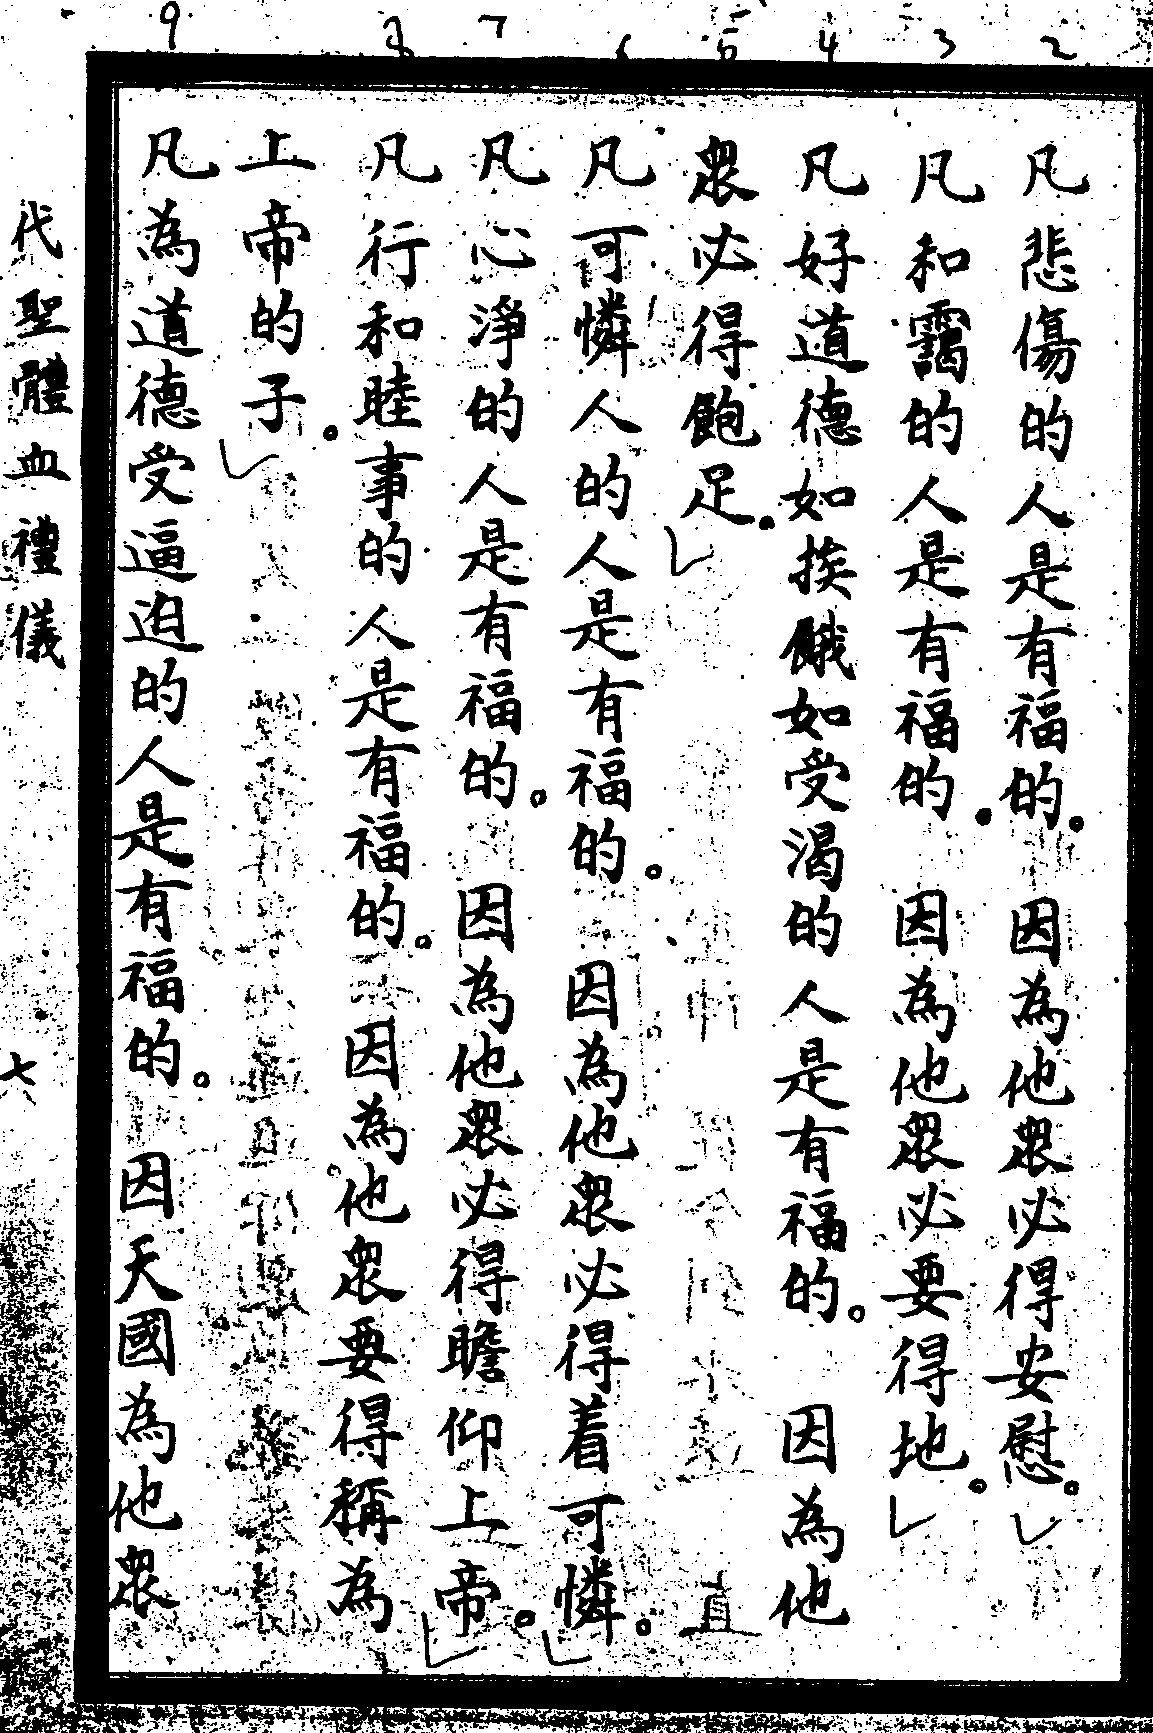 2
3
4
5
6
7
8
9
凡悲傷的人是有福的。因為他衆必得安慰。
凡和靄的人是有福的。因為他衆必要得地。
凡好道德如挨餓如受渴的人是有福的。因為他
衆必得飽足。
凡可憐人的人是有福的。因為他衆必得着可憐。
凡心淨的人是有福的。因為他衆必得瞻仰上帝。
凡行和睦事的人是有福的。因為他衆要得稱為
上帝的子。
凡為道德受逼迫的人是有福的。因天國為他衆
代聖體血禮儀
七